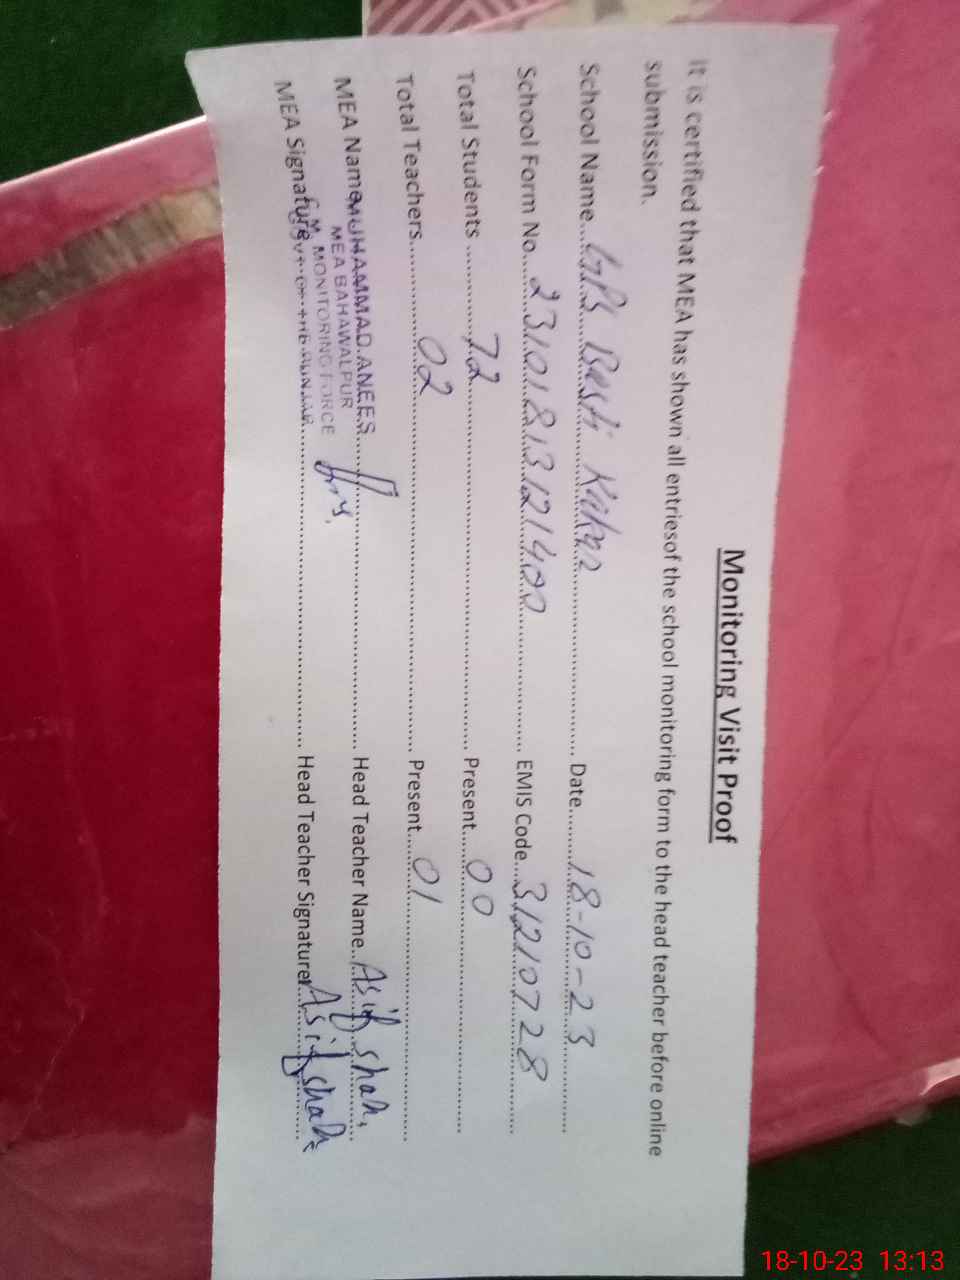 Monitoring Visit Proof
It is certified that MEA has shown all entriesof the school monitoring form to the head teacher before online
submission.
School Name....GPS Basti Kakar.... Date....18-10-23
School Form No....23101813121400.... EMIS Code...31210728
Total Students ....72.... Present....00
Total Teachers....02.... Present....01
MEA Name MUHAMMAD ANEES.... Head Teacher Name..Asif shah,
MEA BAHAWALPUR
MONITORING FORCE
MEA Signature.... Head Teacher Signature Asif shah
18-10-23 13:13